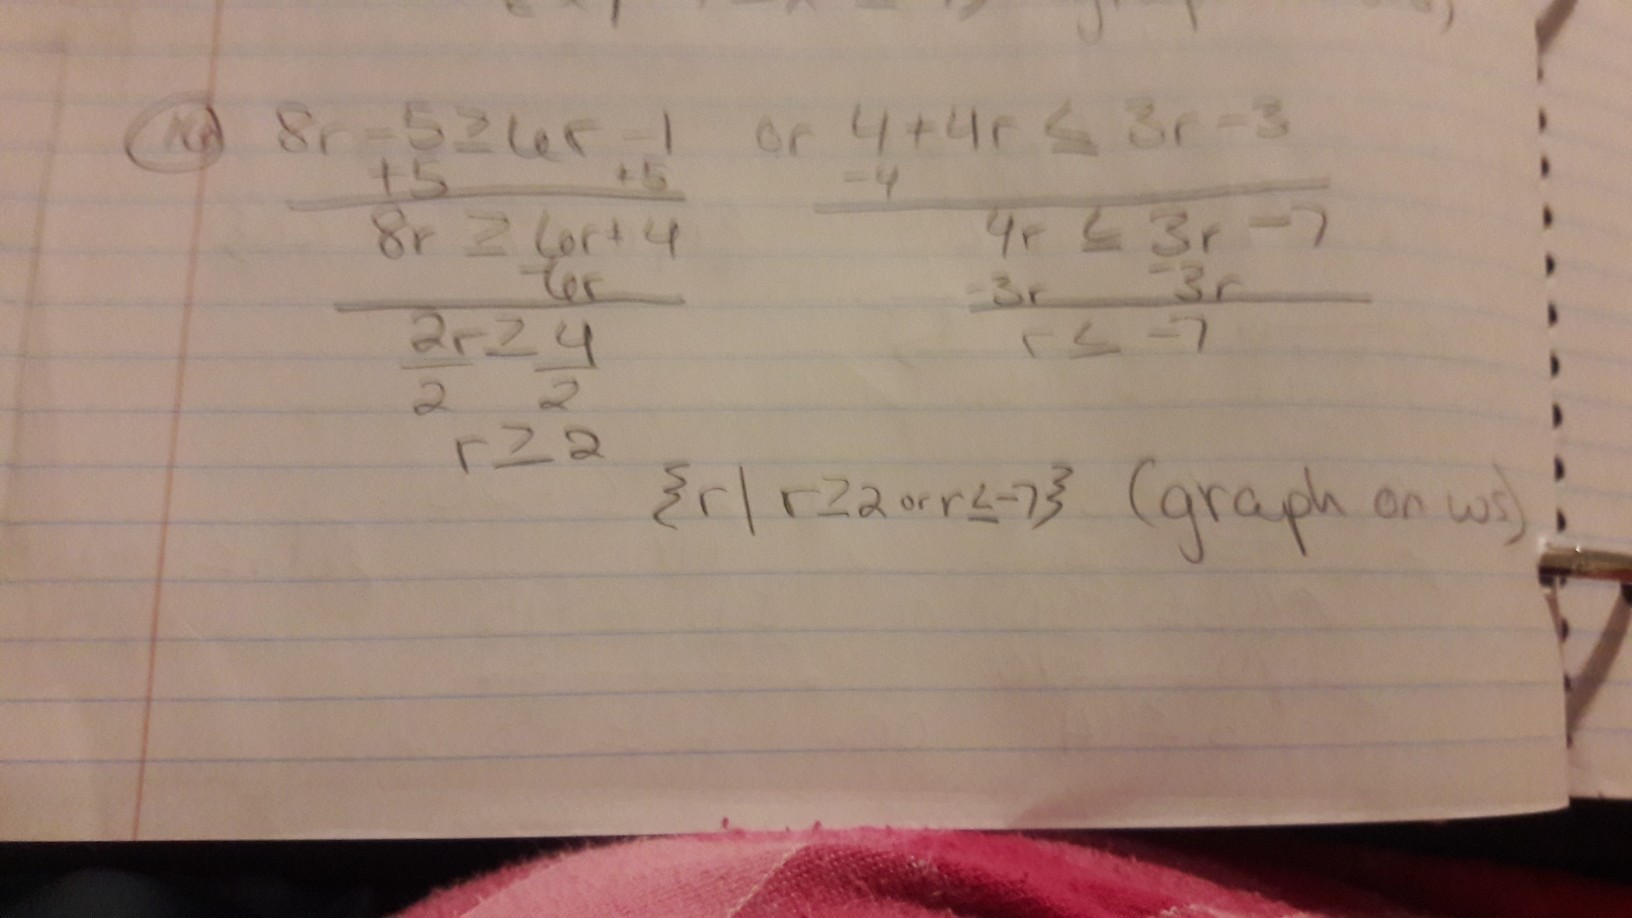 8r - 5 ≥ 6r - 1 or 4 + 4r ≤ 3r - 3
+5 +5 -4
8r ≥ 6r + 4 4r ≤ 3r - 7
-6r -3r -3r
2r ≥ 4 r ≤ -7
2 2
r ≥ 2
{r | r ≥ 2 or r ≤ -7} (graph on ws)